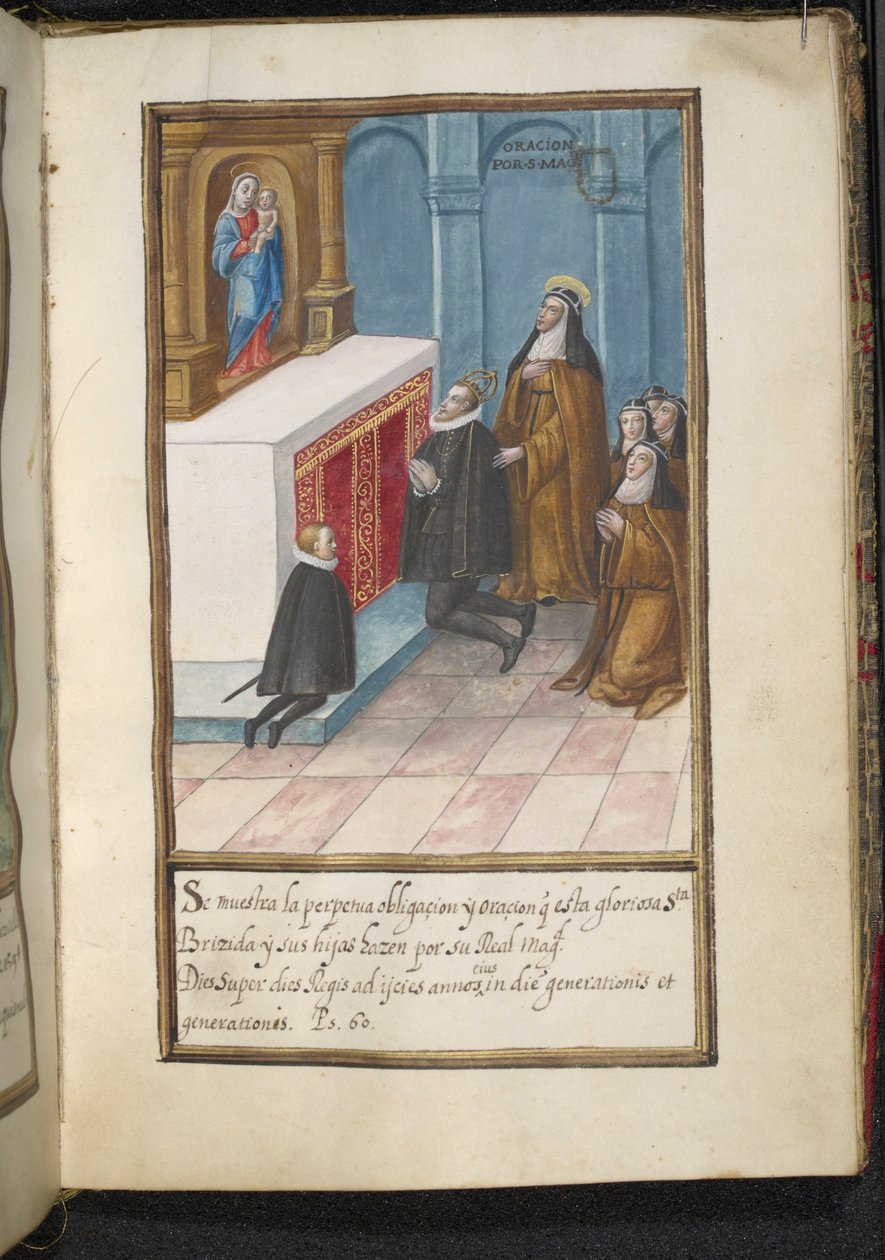 ORACION
POR·S·MAG
Se muestra la perpetua obligaçion y oraçion q̃ esta gloriosa S.ta
Brizida y sus hijas hazen por su Real Mag.d
Dies Super dies Regis ad ijcies annos eius in diē generationis et
generationis. Ps. 60.